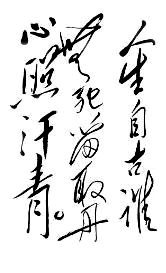 人生自古誰
無死留取丹
心照汗青。